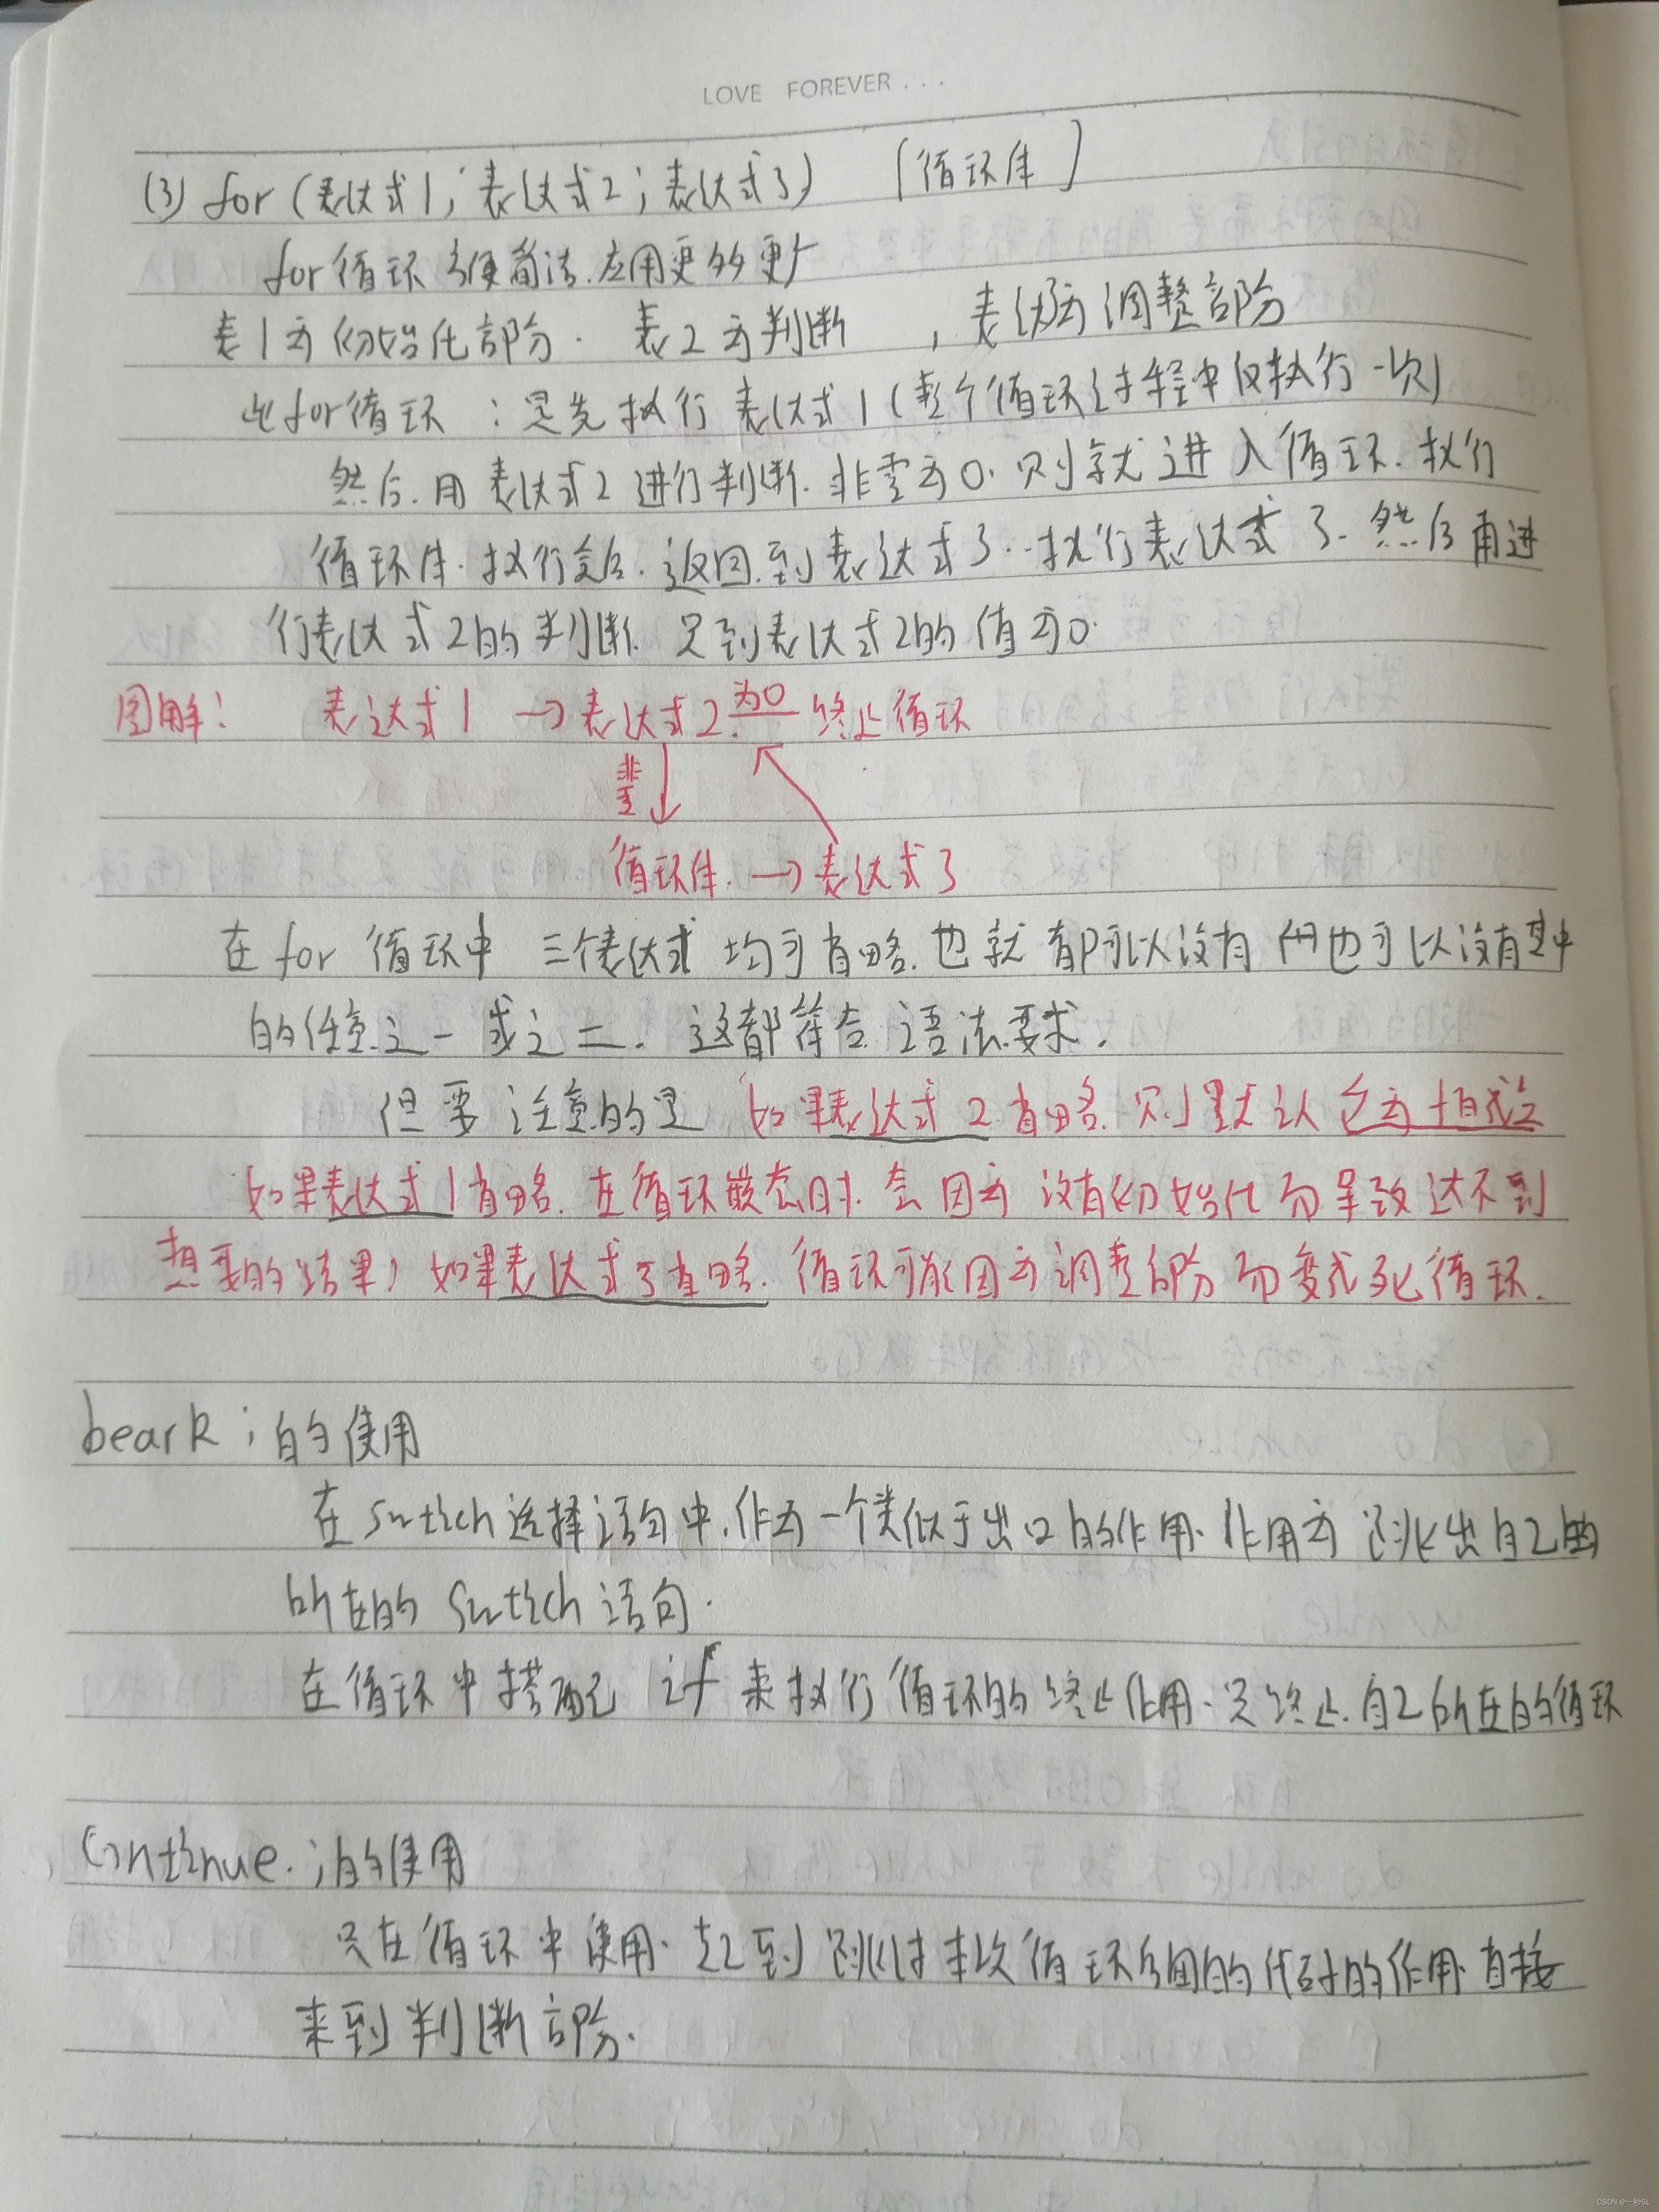 LOVE FOREVER . . .
(3) for (表达式1; 表达式2; 表达式3) [循环体]
for循环方便简洁.应用更多更广
表1为初始化部分. 表2为判断 , 表达3为调整部分
此for循环 : 是先执行表达式1 (整个循环过程中仅执行一次)
然后.用表达式2进行判断.非零为0.则就进入循环.执行
循环体.执行完后.返回到表达式3..执行表达式3.然后再进
行表达式2的判断.只到表达式2的值为0.
图解: 表达式1 → 表达式2 为0 终止循环
非零
循环体. → 表达式3
在for循环中 三个表达式均可省略.也就都可以没有 也可以没有其中
的任意之一或之二. 这都符合语法要求.
但要注意的是 如果表达式2省略.则默认它为恒成立
如果表达式1省略.在循环嵌套时.会因为没有初始化而导致达不到
想要的结果; 如果表达式3省略.循环可能因为调整部分而变成死循环.
beark ; 的使用
在swtich选择语句中,作为一个类似于出口的作用.作用为跳出自己的
所在的swtich语句.
在循环中搭配 if 来执行循环的终止作用.只终止.自己所在的循环
Continue. ;的使用
只在循环中使用.起到跳过本次循环后面的代码的作用.直接
来到判断部分.
CSDN @一秒SL